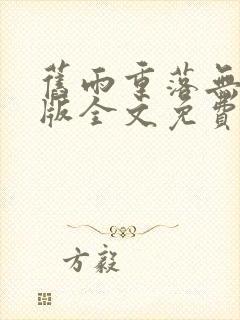 舊雨重落無
版全文免費
方毅